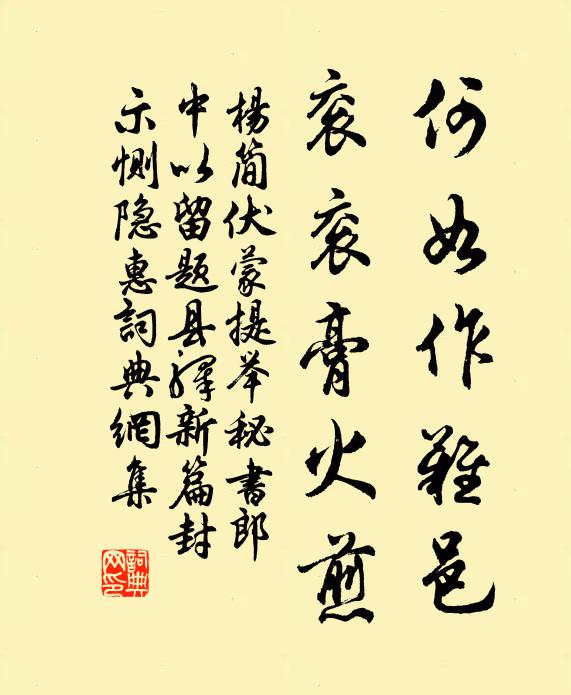 何如作難邑
衮衮膏火煎
楊简伏蒙提举秘書郎
中以留题县驛新篇封
示惻隐惠詞典網集
詞典网印